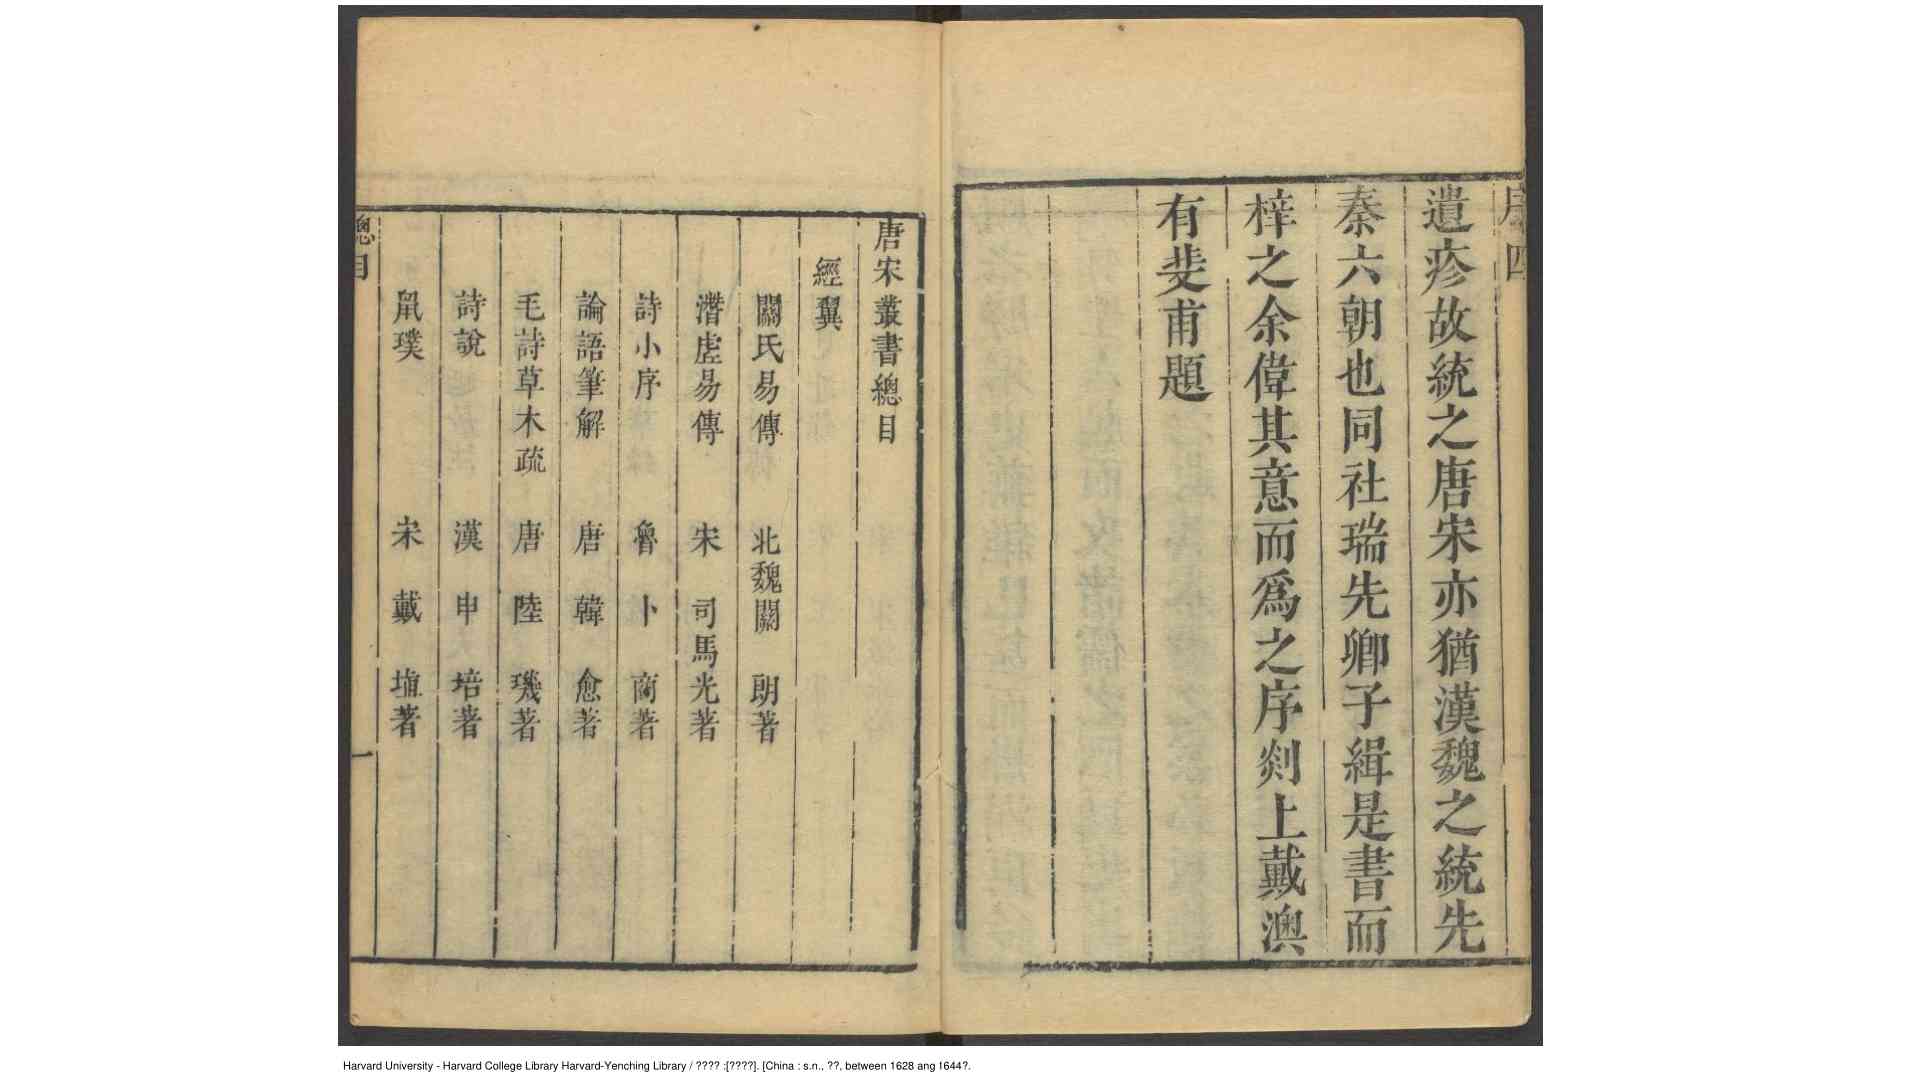 序四
遺疹故統之唐宋亦猶漢魏之統先
秦六朝也同社瑞先卿子緝是書而
梓之余偉其意而爲之序剡上戴澳
有斐甫題
唐宋叢書總目
經翼
關氏易傳 北魏關 朗著
潛虛易傳 宋 司馬光著
詩小序 魯 卜 商著
論語筆解 唐 韓 愈著
毛詩草木疏 唐 陸 璣著
詩說 漢 申 培著
鼠璞 宋 戴 埴著
總目
一
Harvard University - Harvard College Library Harvard-Yenching Library / ???? :[????]. [China : s.n., ??, between 1628 ang 1644?.